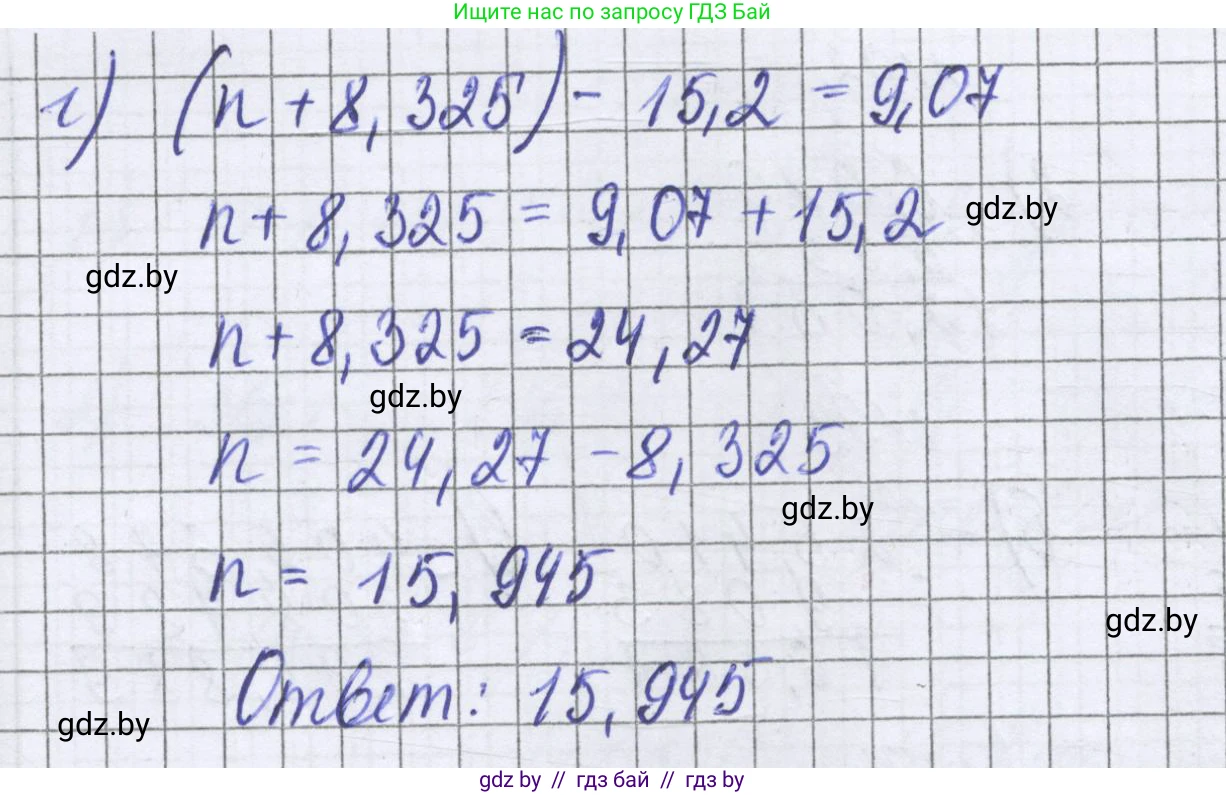 Ищите нас по запросу ГДЗ Бай
г) (n + 8,325) - 15,2 = 9,07
n + 8,325 = 9,07 + 15,2
gdz.by
gdz.by
n + 8,325 = 24,27
gdz.by
n = 24,27 - 8,325
gdz.by
n = 15,945
gdz.by
Ответ: 15,945
gdz.by
gdz by // гдз бай // гдз by